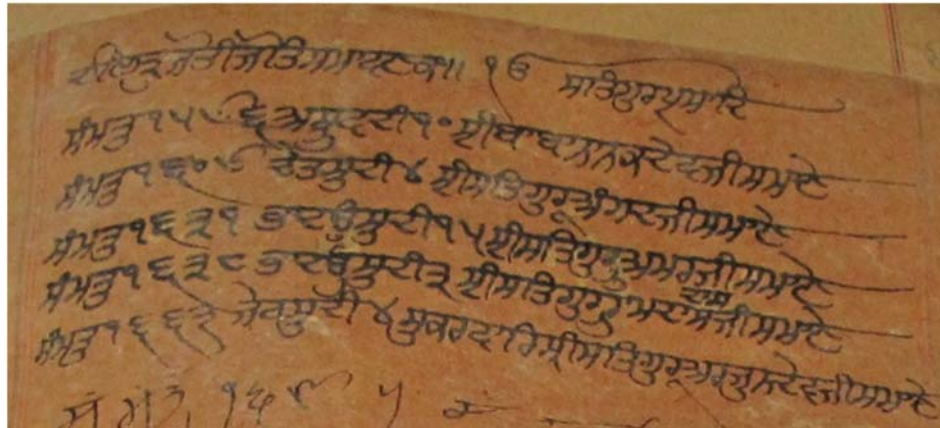 ਚਲਿਤ੍ਰ ਜੋਤੀ ਜੋਤਿ ਸਮਾਵਣ ਕਾ॥ ੧ਓ ਸਤਿਗੁਰਪ੍ਰਸਾਦਿ
ਸੰਮਤੁ ੧੫੯੬ ਅਸੁ ਵਦੀ ੧੦ ਸ੍ਰੀ ਬਾਬਾ ਨਾਨਕ ਦੇਵ ਜੀ ਸਮਾਣੇ
ਸੰਮਤੁ ੧੬੦੯ ਚੇਤ ਸੁਦੀ ੪ ਸ੍ਰੀ ਸਤਿਗੁਰੂ ਅੰਗਦ ਜੀ ਸਮਾਣੇ
ਸੰਮਤੁ ੧੬੩੧ ਭਾਦਉ ਸੁਦੀ ੧੫ ਸ੍ਰੀ ਸਤਿਗੁਰੂ ਅਮਰ ਜੀ ਸਮਾਣੇ
ਸੰਮਤੁ ੧੬੩੮ ਭਾਦਉ ਸੁਦੀ ੩ ਸ੍ਰੀ ਸਤਿਗੁਰੁ ਰਾਮਦਾਸ ਜੀ ਸਮਾਣੇ
ਸੰਮਤੁ ੧੬੬੩ ਜੇਠ ਸੁਦੀ ੪ ਸੁਕਰਵਾਰਿ ਸ੍ਰੀ ਸਤਿਗੁਰੂ ਅਰਜੁਨ ਦੇਵ ਜੀ ਸਮਾਣੇ